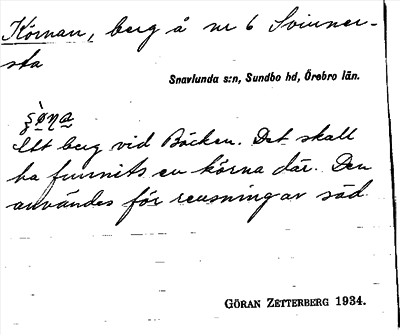 Körnan, berg å nr 6 Svinner-
sta
Snavlunda s:n, Sundbo hd, Örebro län.
Ett berg vid Bäcken. Det skall
ha funnits en körna där. Den
användes för rensning av säd.
GÖRAN ZETTERBERG 1934.